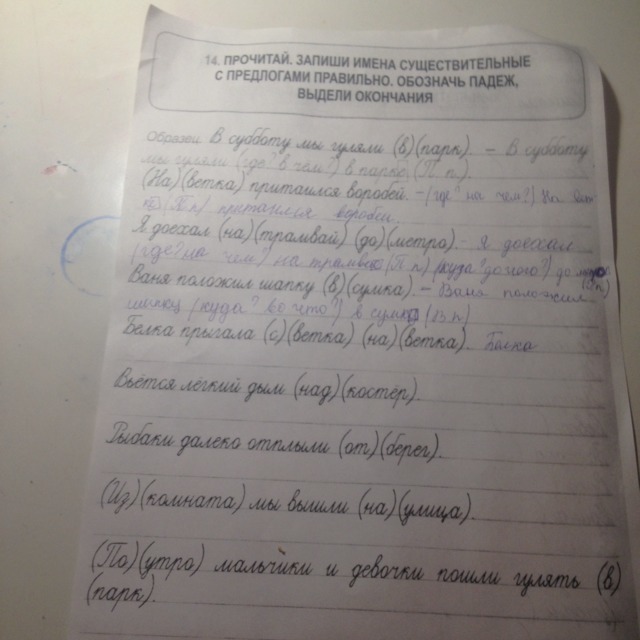 14. ПРОЧИТАЙ. ЗАПИШИ ИМЕНА СУЩЕСТВИТЕЛЬНЫЕ
С ПРЕДЛОГАМИ ПРАВИЛЬНО. ОБОЗНАЧЬ ПАДЕЖ,
ВЫДЕЛИ ОКОНЧАНИЯ
Образец. В субботу мы гуляли (в)(парк). – В субботу
мы гуляли (где? в чем?) в парке (П.п)
(На)(ветка) притаился воробей. – (где? на чем?) На
(П.п) притаился воробей.
Я доехал (на)(трамвай) (до)(метро). – Я доехал
(где? на чем?) на трамвае (П.п) (куда? до чего?) до
Ваня положил шапку (в)(сумка). – Ваня положил
шапку (куда? во что?) в сумку (В.п)
Белка прыгала (с)(ветка) (на)(ветка). Белка
Вьётся лёгкий дым (над)(костёр).
Рыбаки далеко отплыли (от)(берег).
(Из)(комната) мы вышли (на)(улица).
(По)(утро) мальчики и девочки пошли гулять (в)
(парк).